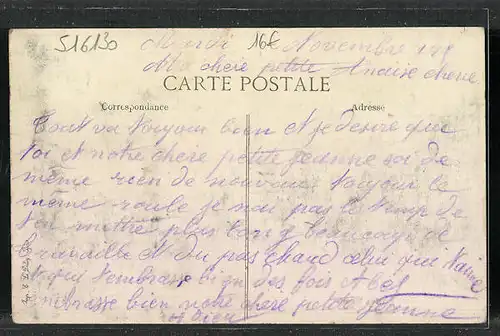 S16130
Mardi 16€ Novembre
Ma chere petite Anaise cherie
CARTE POSTALE
Correspondance Adressé
Tout va toujour bien et je desire que
toi et notre chere petite Jeanne soi de
même rien de nouveau toujour le
même roule je nai pas le temp de
ten mettre plus long beaucoup de
travaille et du pas chaud celui qui taime
et qui tembrasse bien des fois Abel
embrasse bien notre chere petite Jeanne